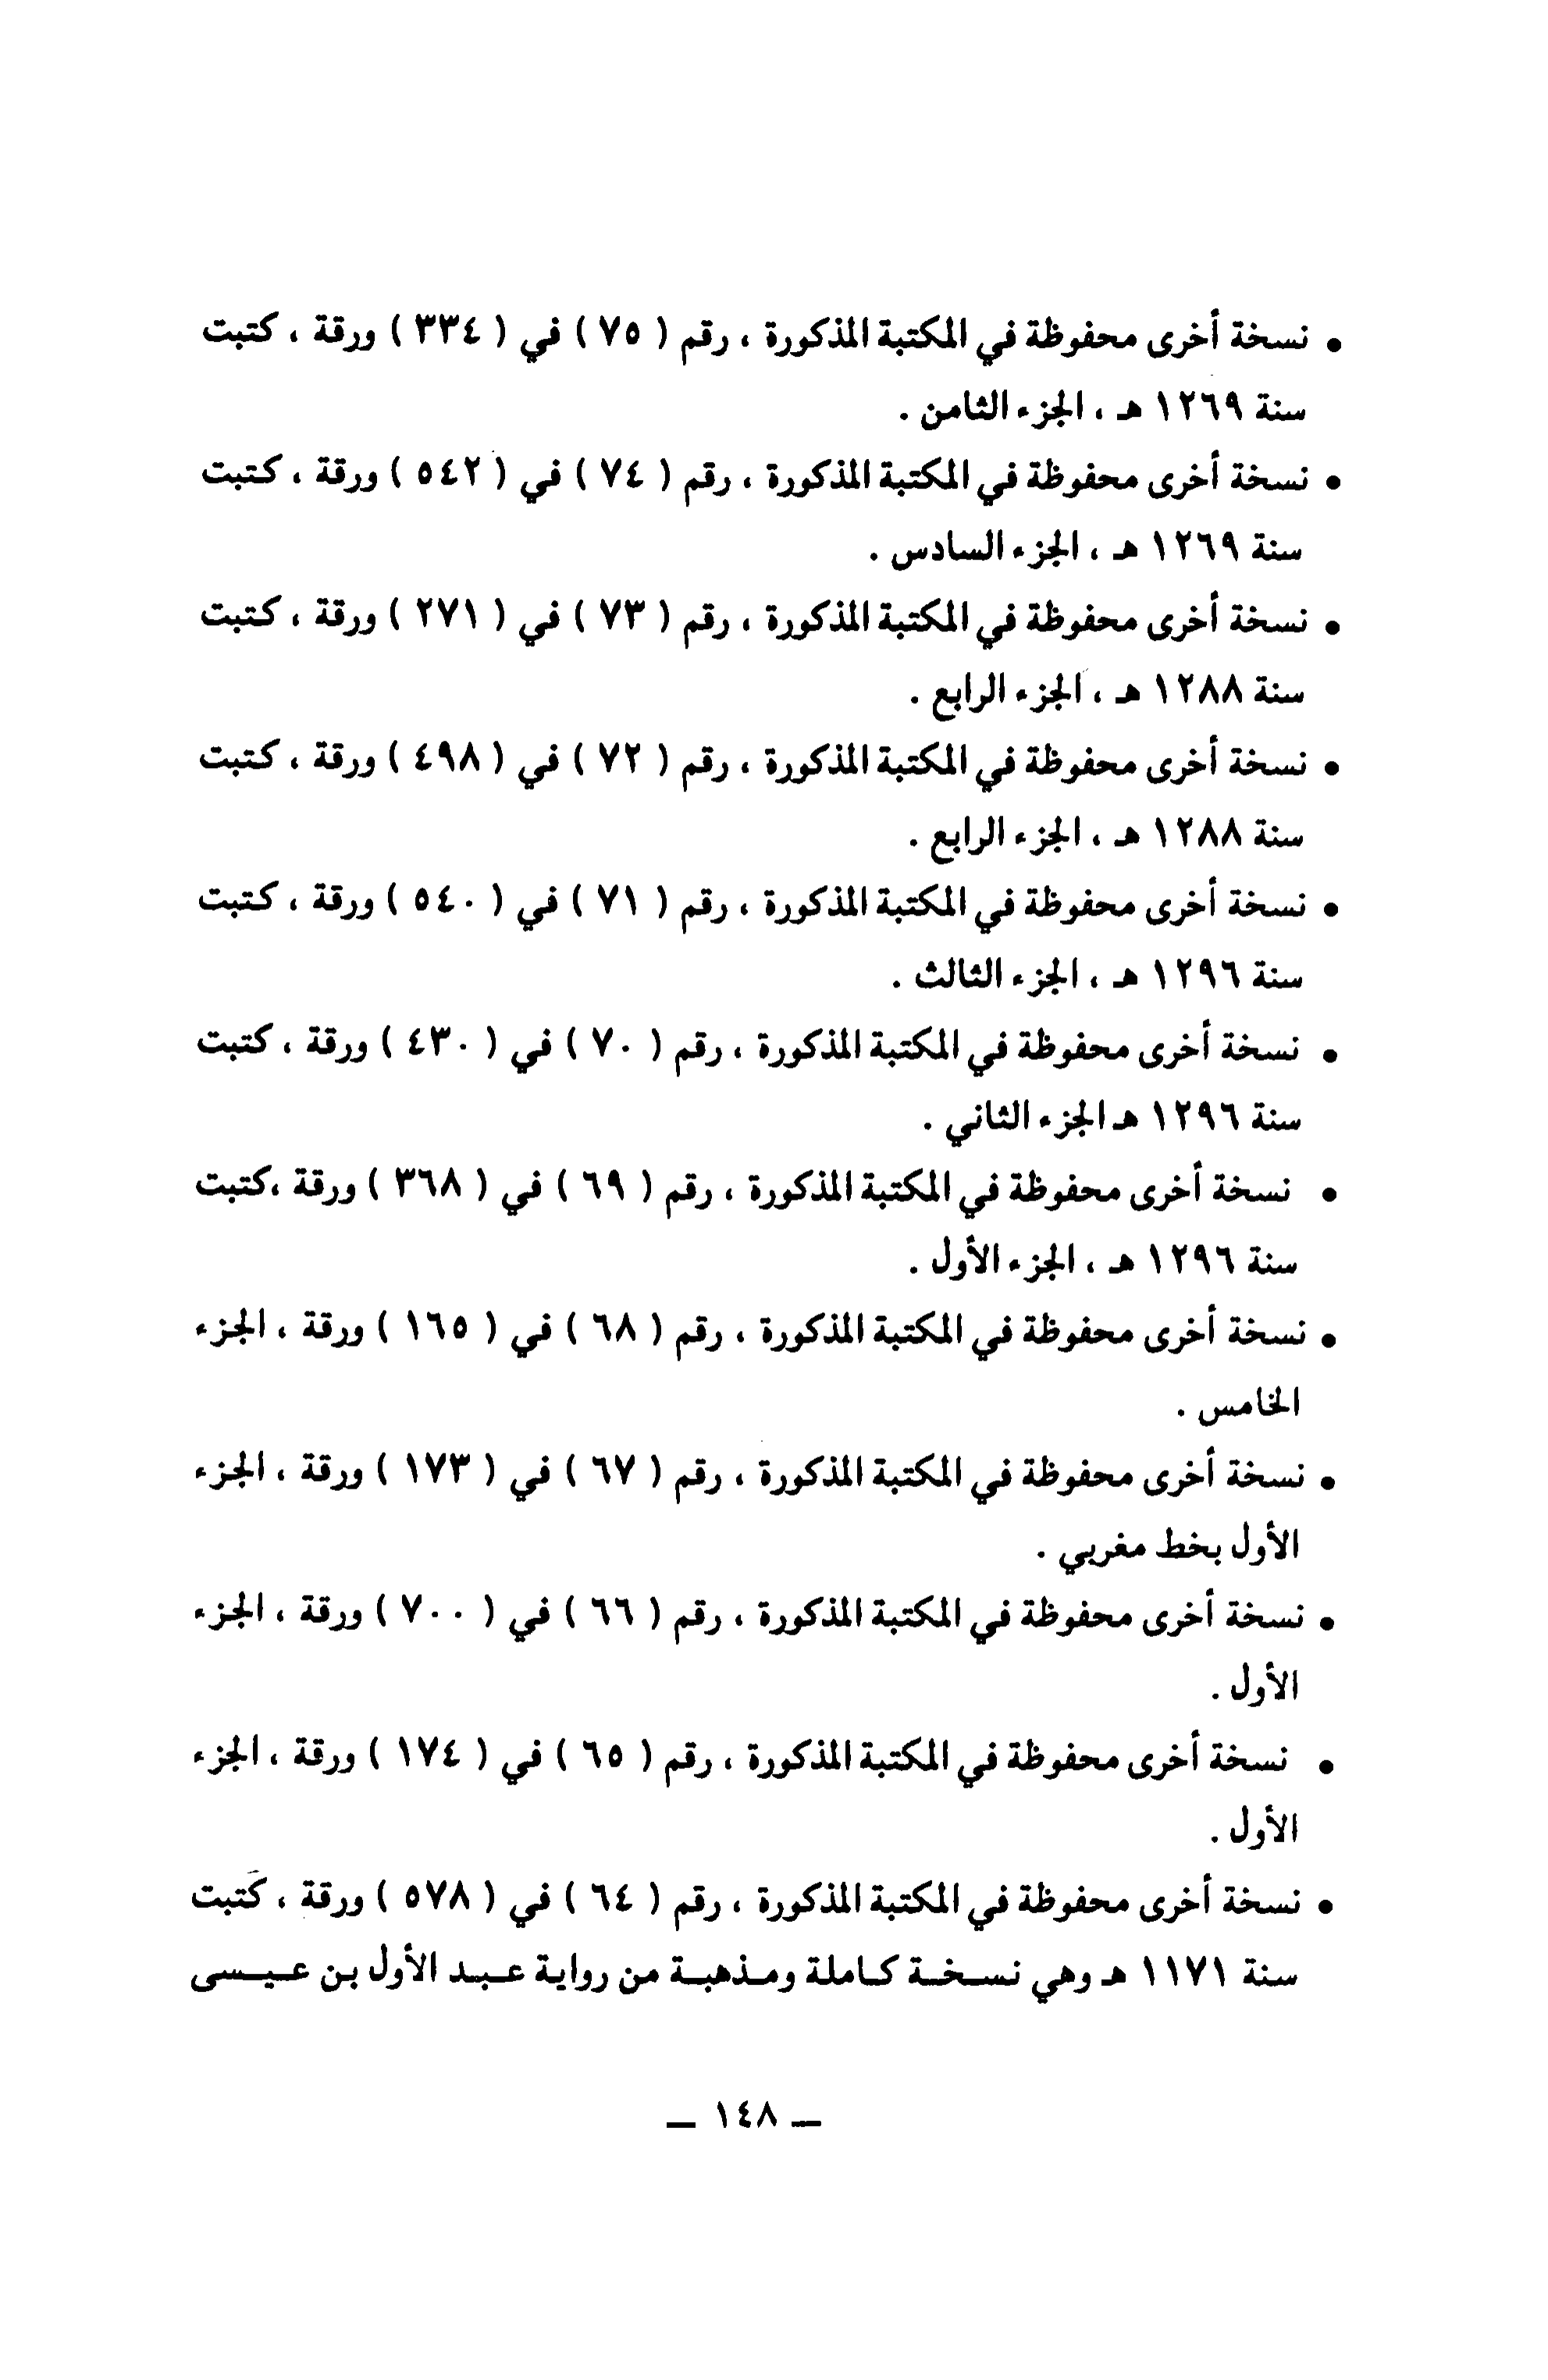 • نسخة أخرى محفوظة في المكتبة المذكورة ، رقم ( ٧٥ ) في ( ٣٣٤ ) ورقة ، كتبت
سنة ١٢٦٩ هـ ، الجزء الثامن .
• نسخة أخرى محفوظة في المكتبة المذكورة ، رقم ( ٧٤ ) في ( ٥٤٢ ) ورقة ، كتبت
سنة ١٢٦٩ هـ ، الجزء السادس .
• نسخة أخرى محفوظة في المكتبة المذكورة ، رقم ( ٧٣ ) في ( ٢٧١ ) ورقة ، كتبت
سنة ١٢٨٨ هـ ، الجزء الرابع .
• نسخة أخرى محفوظة في المكتبة المذكورة ، رقم ( ٧٢ ) في ( ٤٩٨ ) ورقة ، كتبت
سنة ١٢٨٨ هـ ، الجزء الرابع .
• نسخة أخرى محفوظة في المكتبة المذكورة ، رقم ( ٧١ ) في ( ٥٤٠ ) ورقة ، كتبت
سنة ١٢٩٦ هـ ، الجزء الثالث .
• نسخة أخرى محفوظة في المكتبة المذكورة ، رقم ( ٧٠ ) في ( ٤٣٠ ) ورقة ، كتبت
سنة ١٢٩٦ هـ الجزء الثاني .
• نسخة أخرى محفوظة في المكتبة المذكورة ، رقم ( ٦٩ ) في ( ٣٦٨ ) ورقة ،كتبت
سنة ١٢٩٦ هـ ، الجزء الأول .
• نسخة أخرى محفوظة في المكتبة المذكورة ، رقم ( ٦٨ ) في ( ١٦٥ ) ورقة ، الجزء
الخامس .
• نسخة أخرى محفوظة في المكتبة المذكورة ، رقم ( ٦٧ ) في ( ١٧٣ ) ورقة ، الجزء
الأول بخط مغربي .
• نسخة أخرى محفوظة في المكتبة المذكورة ، رقم ( ٦٦ ) في ( ٧٠٠ ) ورقة ، الجزء
الأول .
• نسخة أخرى محفوظة في المكتبة المذكورة ، رقم ( ٦٥ ) في ( ١٧٤ ) ورقة ، الجزء
الأول .
• نسخة أخرى محفوظة في المكتبة المذكورة ، رقم ( ٦٤ ) في ( ٥٧٨ ) ورقة ، كتبت
سنة ١١٧١ هـ وهي نسخة كاملة ومذهبة من رواية عبد الأول بن عيسى
ـ ١٤٨ ـ